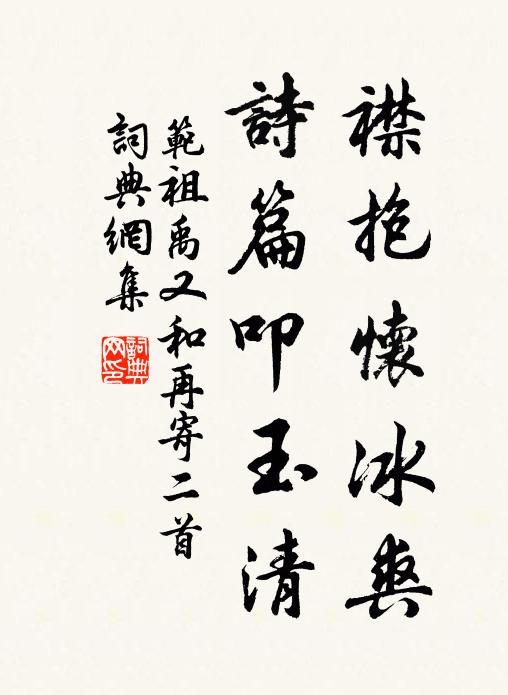 襟抱懷冰爽
詩篇叩玉清
範祖禹又和再寄二首
詞典網集
詞典
网印